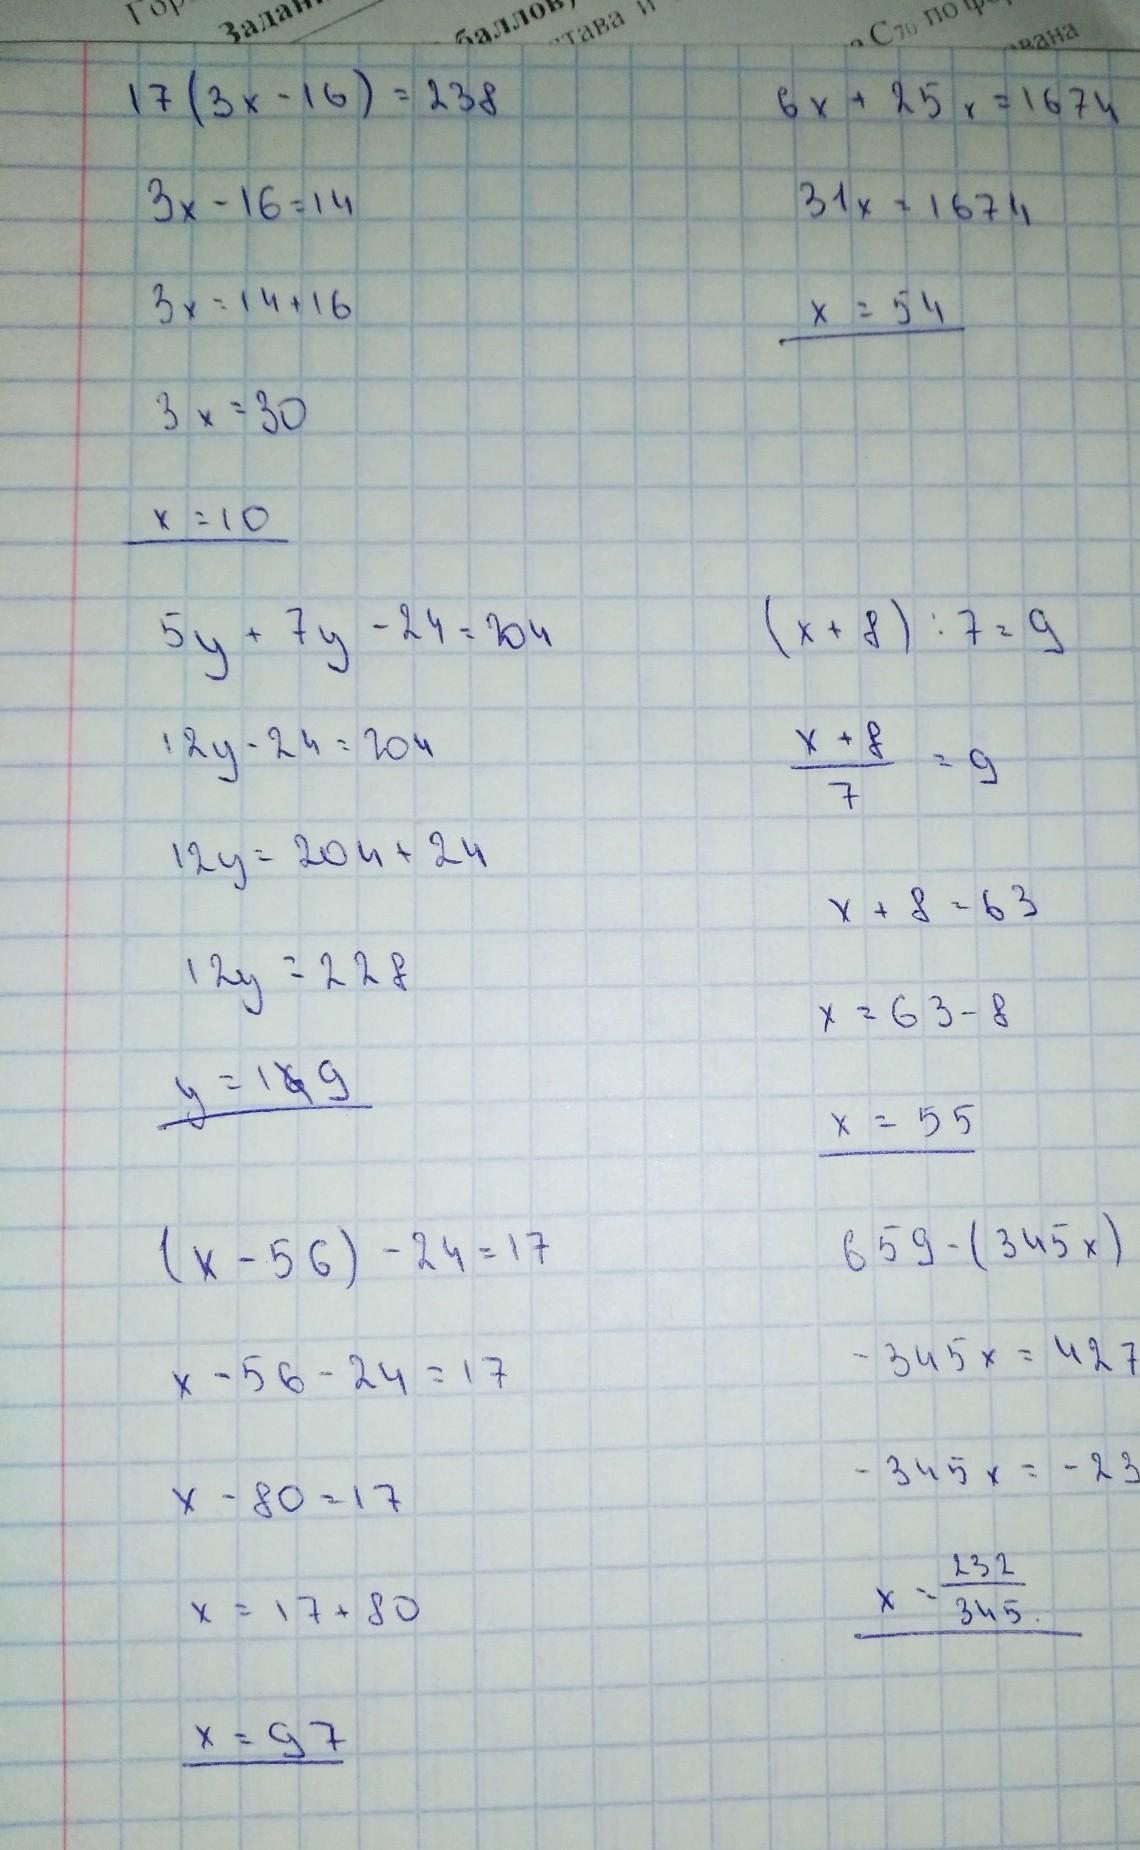 Задан
баллов)
става и
C₇₀ по
17(3x-16)=238
3x-16=14
3x=14+16
3x=30
x=10
6x+25x=1674
31x=1674
x=54
5y+7y-24=204
12y-24=204
12y=204+24
12y=228
y=19
(x+8):7=9
x+8
7
=9
x+8=63
x=63-8
x=55
(x-56)-24=17
x-56-24=17
x-80=17
x=17+80
x=97
659-(345x)
-345x=427
-345x=-23
x=232/345.